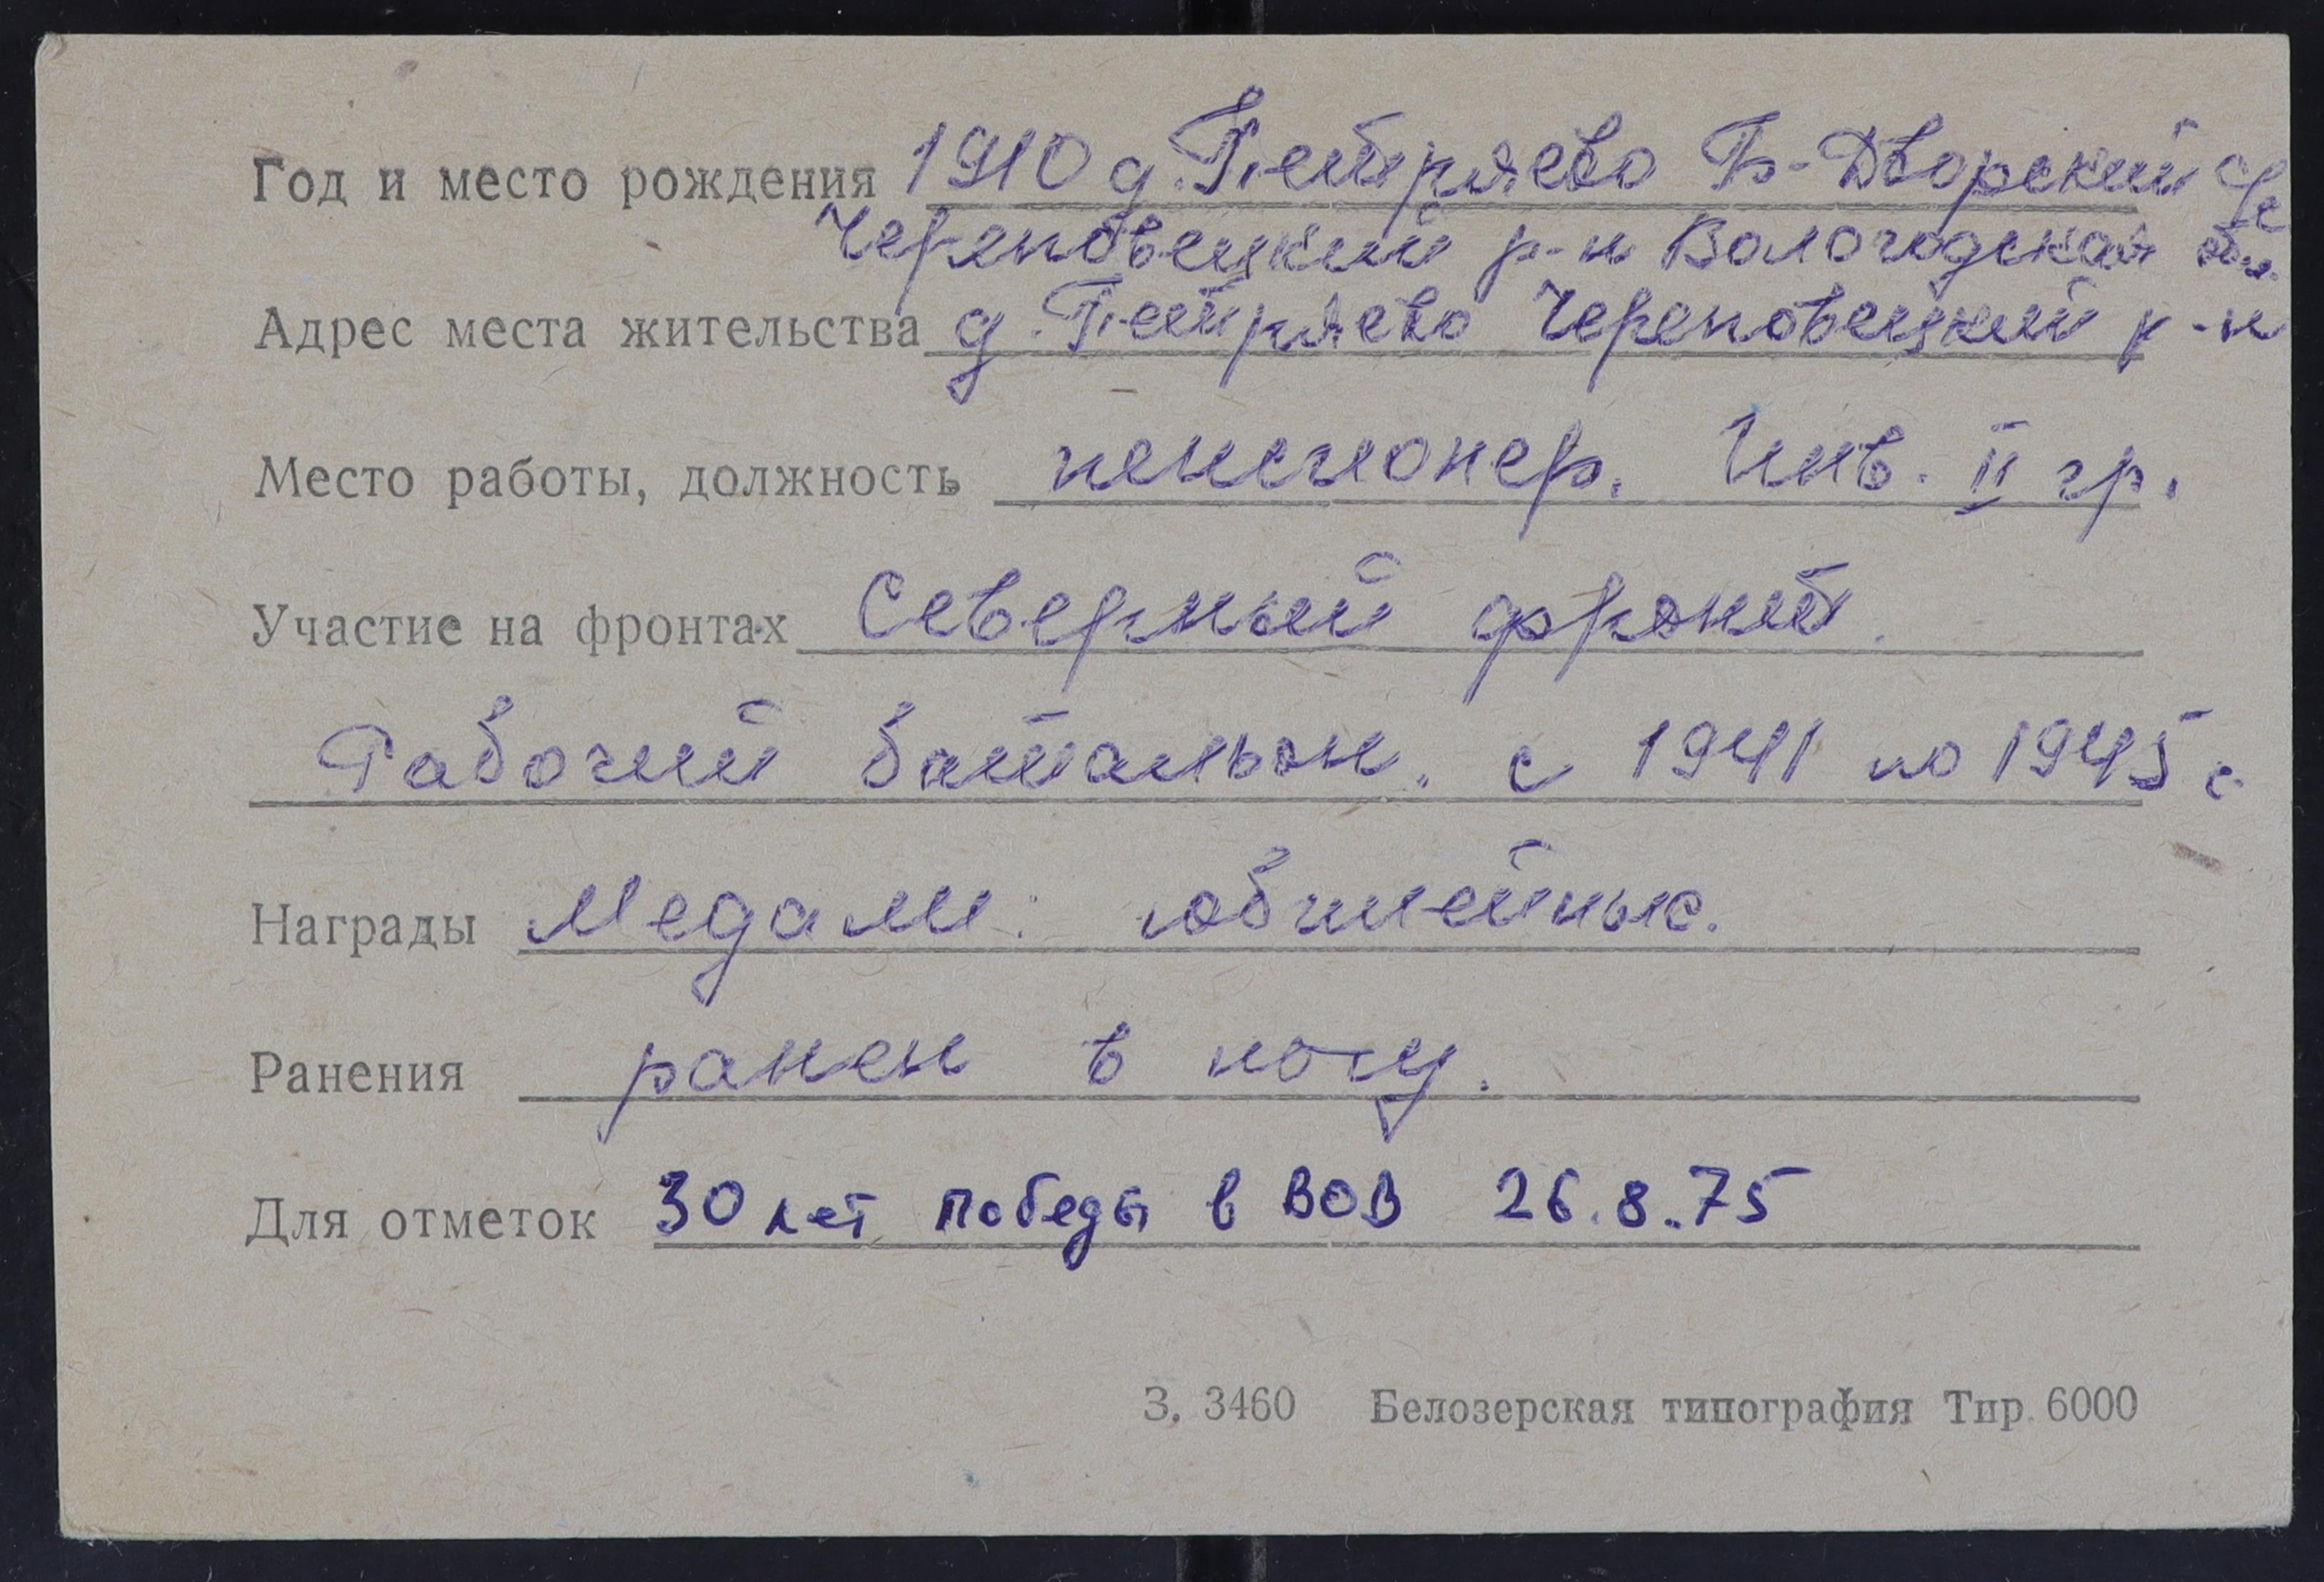 Год и место рождения 1910 д. Петряево Б-Дворский с/с
Череповецкий р-н Вологодская обл.
Адрес места жительства д. Петряево Череповецкий р-н
Место работы, должность пенсионер. Инв. II гр.
Участие на фронтах Северный фронт.
Рабочий батальон. с 1941 по 1945 г
Награды Медали: юбилейные.
Ранения ранен в ногу.
Для отметок 30 лет победы в ВОВ 26.8.75
З. 3460 Белозерская типография Тир. 6000